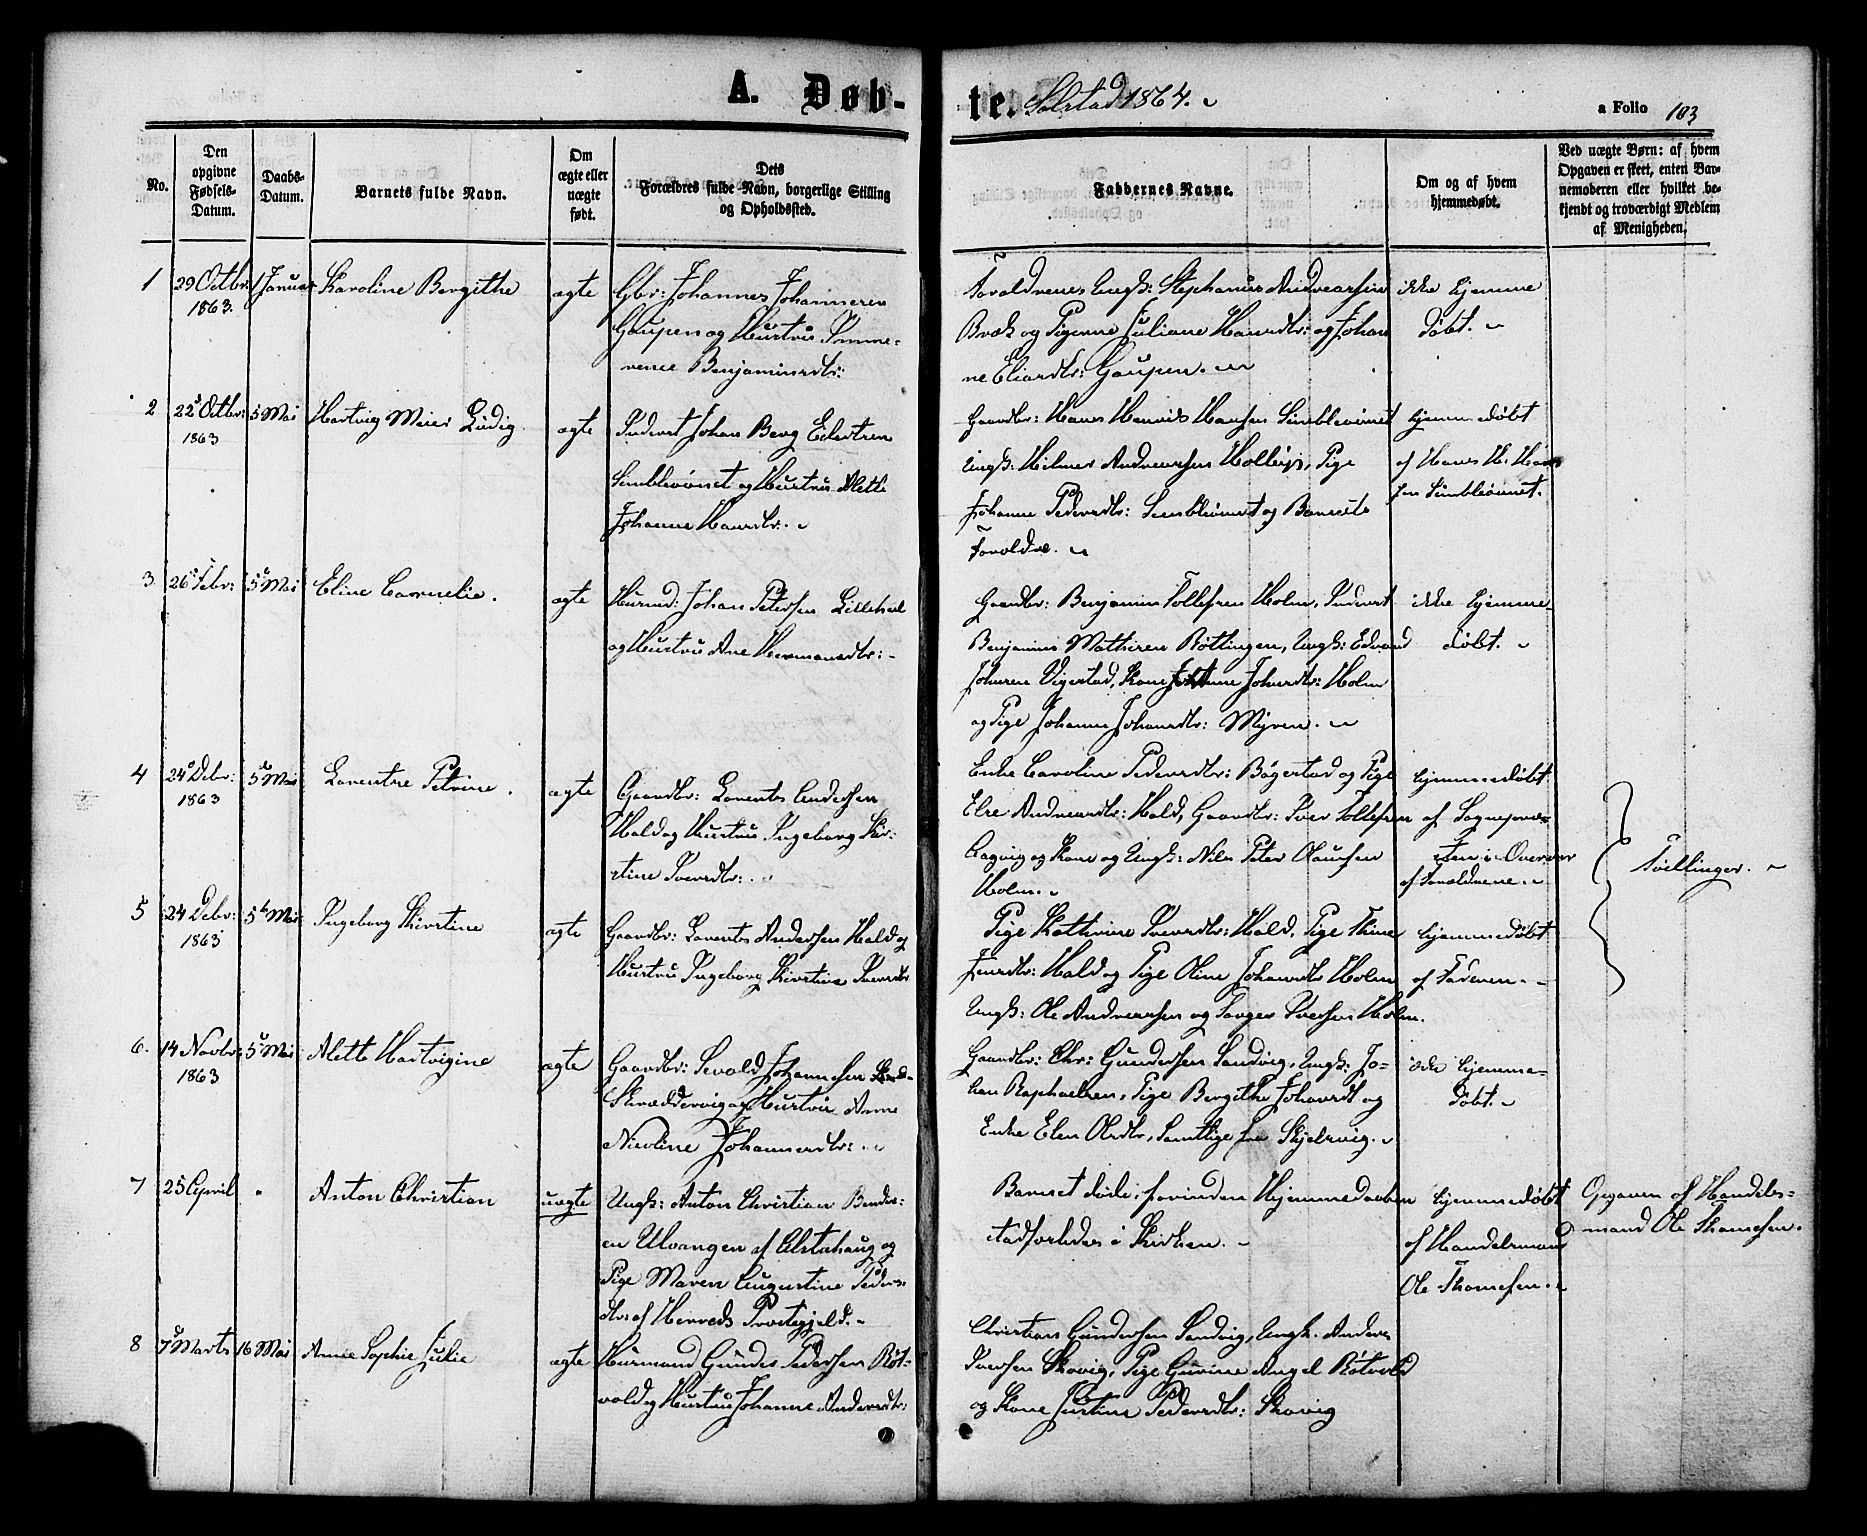 A. Døb-
te. Solstad 1864.
a Folio 103
No.
Den opgivne Fødsels-Datum.
Daabs-Datum.
Barnets fulde Navn.
Om ægte eller uægte født.
Dets Forældres fulde Navn, borgerlige Stilling og Opholdssted.
Faddernes Navne.
Om og af hvem hjemmedøbt.
Ved uægte Børn: af hvem
Opgaven er skeet, enten Bar-
nemoderen eller hvilket be-
kjendt og troværdigt Medlem
af Menigheden.
1 29 Octbr: 1863. 1 Januar Karoline Bergithe ægte
Gbr: Johannes Johannesen
Gaupen og Hustru
Benjaminsdtr:
Forældrenes Ungk: Stephanus Andreassen
Bræk og Pigerne Juliane Hansdtr: og Johan
ne Eliasdtr: Gaupen.
ikke hjemme
døbt.
2 22 Octbr: 1863 5 Mai Hartvig Meier Ludig ægte
Inderst Johan Berg Edistren
og Hustru Alette
Johanne Hansdtr:
Gaardbr: Hans Henrik Hansen
Ungk: Hilmer Andreassen Pige
Johanne Pedersdtr: og Barnets
Forældre.
hjemmedøbt
af Hans H. Han
sen
3 26 Febr: 5 Mai Eline Cornelie. ægte
Husmd: Johan Petersen
og Hustru Ane Hermansdtr:
Gaardbr: Benjamin Tollefsen Holm, Inderst
Benjamin Mathisen Røttingen, Ungk: Edvard
Johnsen Vigestad, Kone Johnsdtr: Holm
og Pige Johanne Johansdtr: Myren.
ikke hjemme-
døbt.
4 24 Debr: 1863 5 Mai Lorentse Petrine. ægte
Gaardbr: Lorents Andersen
Hald og Hustru Ingeborg Kir-
stine Iversdtr:
Enke Caroline Pedersdtr: Bøgestad og Pige
Else Andreasdtr: Hald, Gaardbr: Iver Tollefsen
og Kone og Ungk: Nils Peter Olaussen
Holm.
hjemmedøbt
af Sognepræ-
sten i Overvær
af Forældrene.
Tvillinger.
5 24 Debr: 1863 5 Mai Ingeborg Kirstine ægte
Gaardbr: Lorents Andersen Hald og
Hustru Ingeborg Kirstine Iversdtr
Pige Kathrine Iversdtr: Hald, Pige Thine
Jensdtr: Hald og Pige Oline Johansdtr Holm
Ungk: Ole Andreassen og Torger Iversen Holm.
hjemmedøbt
af Faderen.
6. 14 Novbr: 1863 5 Mai Alette Hartvigine ægte
Gaardbr: Sevald Johannesen
og Hustru Anne
Nicoline Johannesdtr:
Gaardbr: Chr: Gundersen Sandvig, Ungk: Jo-
han Raphaelsen, Pige Bergithe Johansdt og
Enke Elen Olsdtr, Samtlige fra Skjelvig.
ikke hjemme-
døbt.
7 25 April Anton Christian uægte
Ungk: Anton Christian
en Ulvangen af Alstahaug og
Pige Maren Augustine Peders-
dtr af Herreds Præstegjeld.
Barnet døde, forinden Hjemmedaaben
stadfæstedes i Kirken.
hjemmedøbt
af Handelsmand
Ole Thomesen.
Opgaven af Handels-
mand Ole Thomesen.
8 7 Marts 16 Mai Anne Sophie Julie ægte
Husmand Gunder Pedersen Røt-
vold og Hustru Johanne Andersdtr:
Christian Gundersen Sandvig, Ungk. Anders
Iversen Skovig, Pige Gurine Angel Røtvold
og Kone Justine Pedersdtr: Skovig